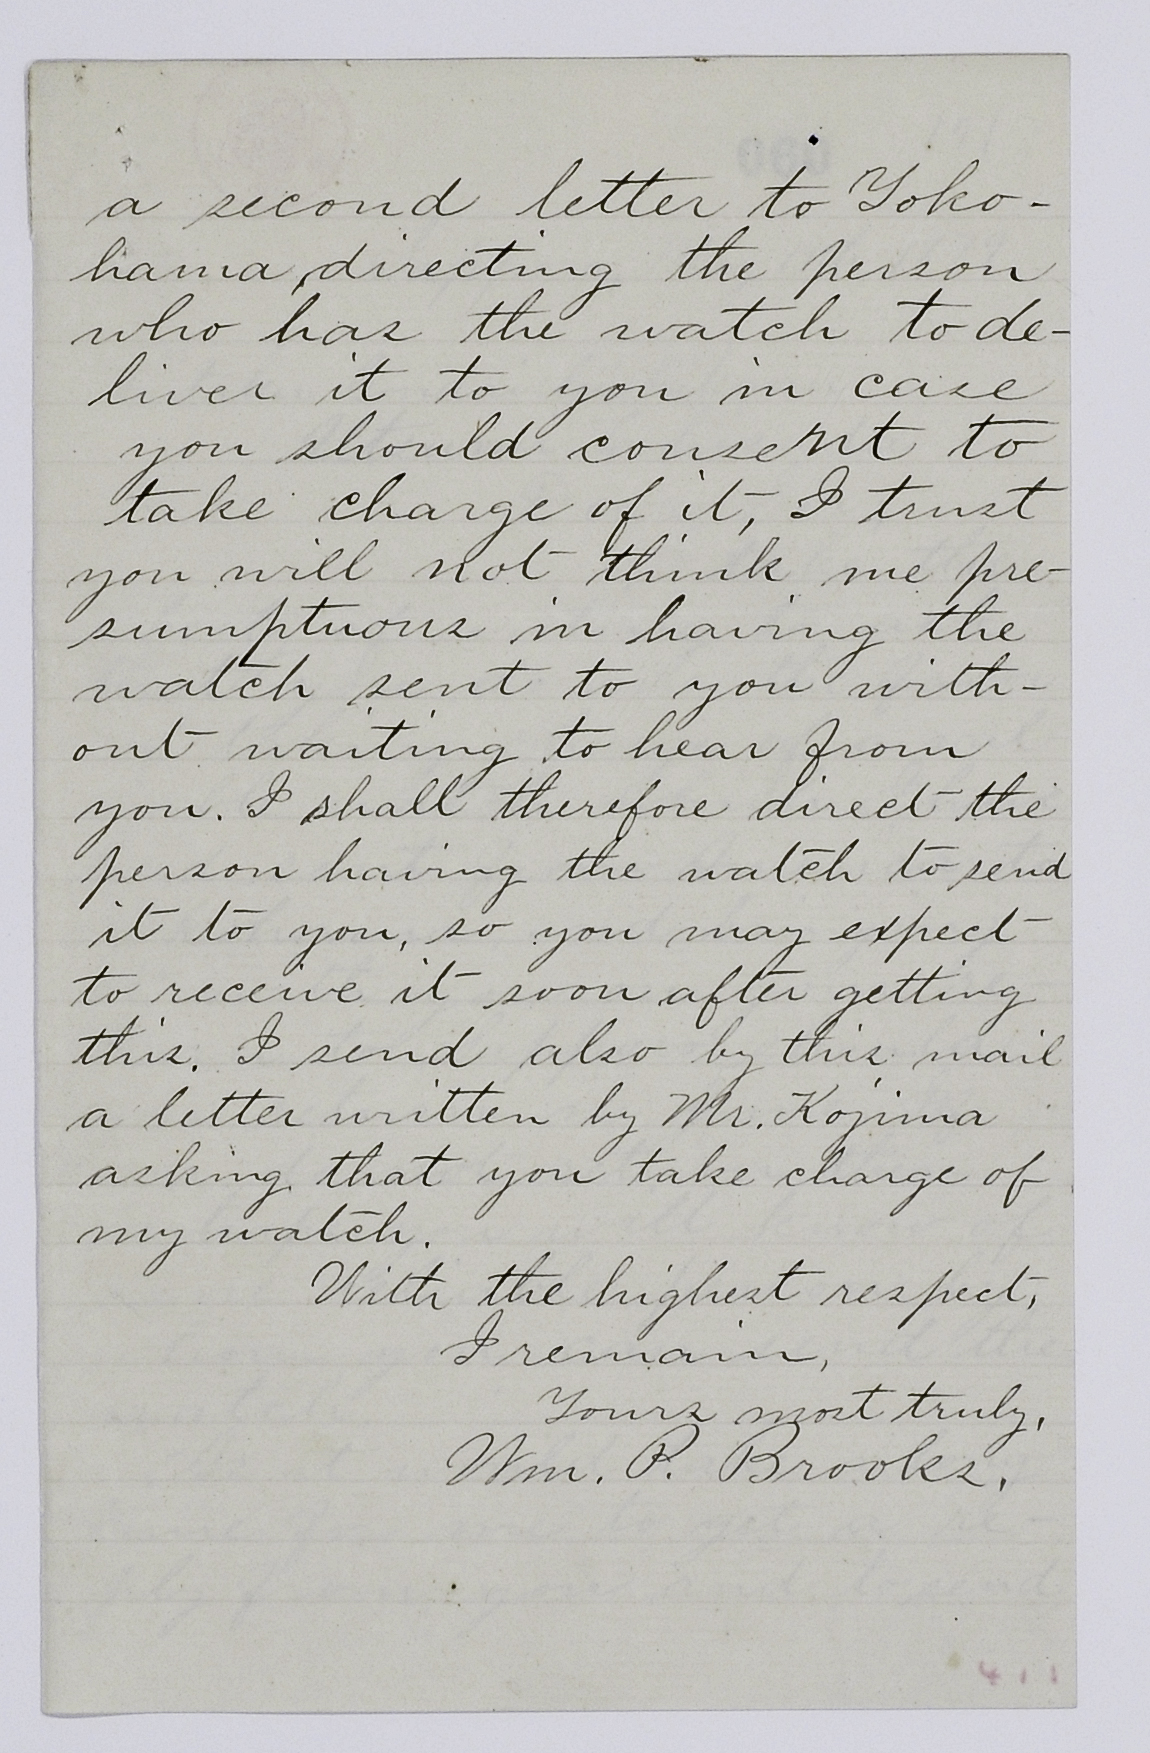 a second letter to Yoko-
hama, directing the person
who has the watch to de-
liver it to you in case
you should consent to
take charge of it, I trust
you will not think me pre-
sumptuous in having the
watch sent to you with-
out waiting to hear from
you. I shall therefore direct the
person having the watch to send
it to you, so you may expect
to receive it soon after getting
this. I send also by this mail
a letter written by Mr. Kojima
asking that you take charge of
my watch.
With the highest respect,
I remain,
Yours most truly,
Wm. P. Brooks.